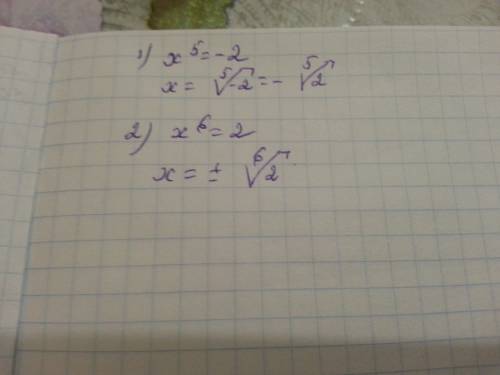 1) x⁵=-2
x = ⁵√-2 = - ⁵√2
2) x⁶=2
x = ± ⁶√2